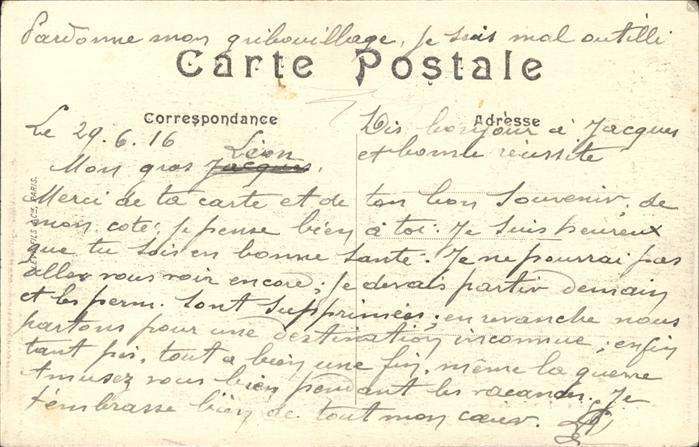 Pardonne mon gribouillage, je suis mal outilli
Carte Postale
Correspondance
Adresse
Le 29.6.16
Dis bonjour à Jacques
et bonne réussite
Léon
Mon gros Jacques.
Merci de ta carte et de ton bon souvenir, de
mon coté, je pense bien à toi. Je suis heureux
que tu sois en bonne santé. Je ne pourrai pas
aller vous voir encore, je devais partir demain
et les perm. sont supprimées; en revanche nous
partons pour une destination inconnue; enfin
tant pis, tout a bien une fin, même la guerre
Amusez vous bien pendant les vacances. Je
t'embrasse bien de tout mon cœur.
PARIS.